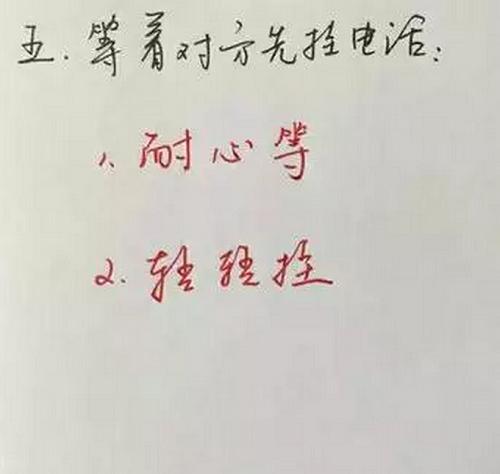 五.等着对方先挂电话:
1.耐心等
2.轻轻挂